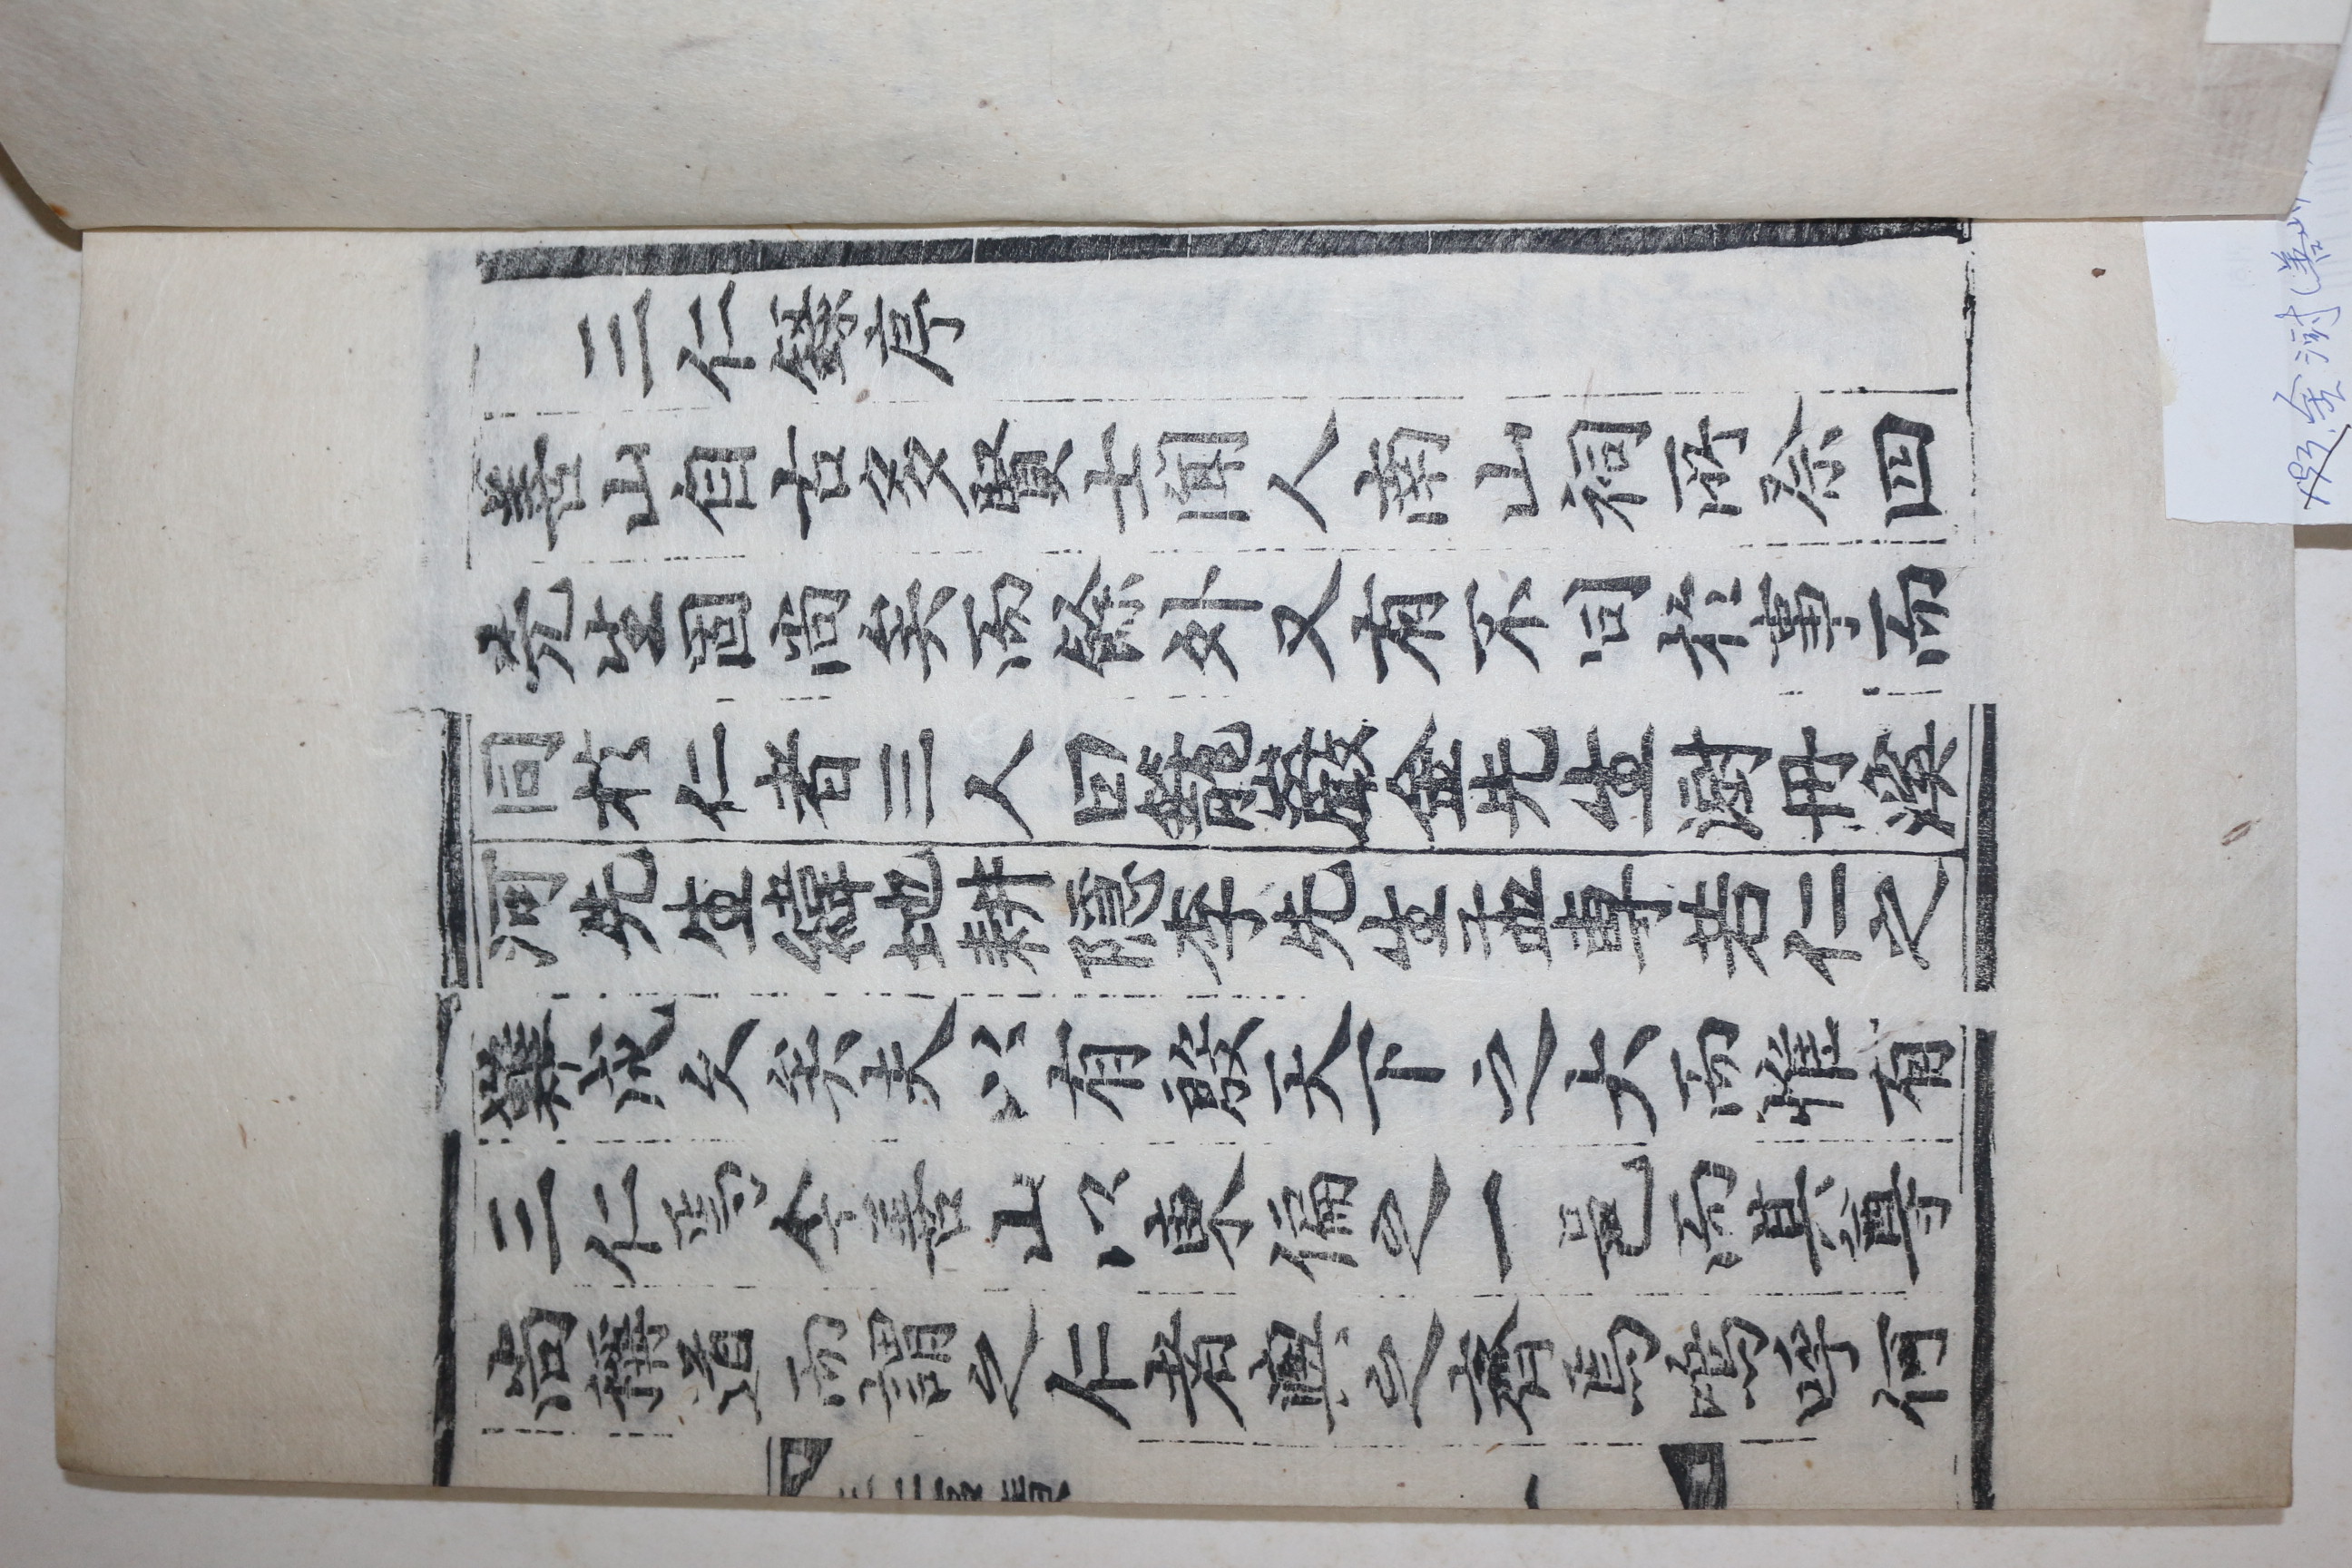 三仁錄序
善山自古多賢士聞人南山祠所祭四
先生固尚矣而餘外又有不同於事而
同於仁者三人曰籠巖金先生澍丹溪
河先生緯地耕隱李先生孟專若仁之
難成久矣夫以有殷天下之大而惟有
三仁焉今善山以東偏之一邑而其尊
尚稱道而謂之仁者與之齊焉嗚呼何
一
金澍(善山